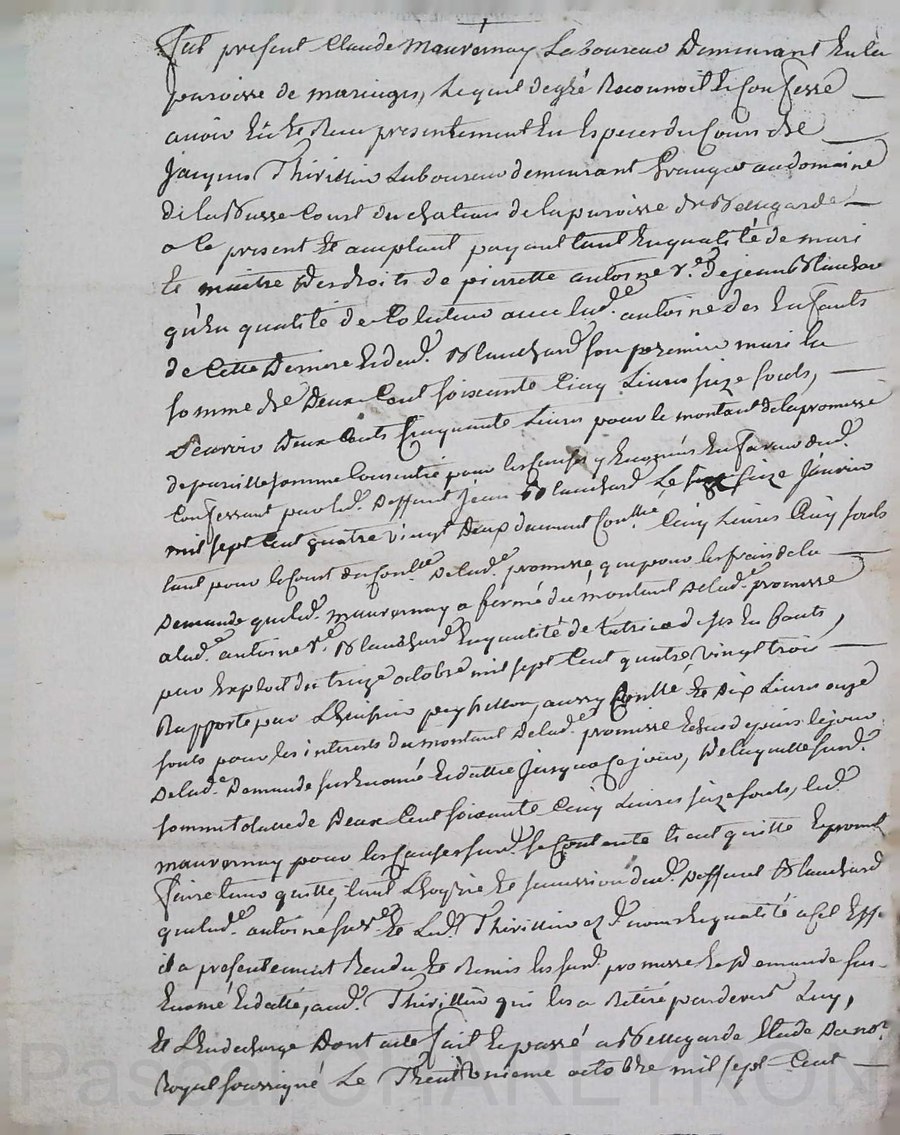 Fut present Claude Mauvernay Laboureur Demeurant En la
paroisse de maringes, Lequel de gré Reconnoit Et Confesse
avoir Eû Et Reçu presentement En Especes du Cours de
Jacques Thivillier Laboureur demeurant Granger au domaine
de la Basse Court du chateau de la paroisse de Bellegarde
a ce present Et acceptant payant tant En qualité de mari
Et maitre Des droits de pierrette antoine v.e de jean Blanchard
qu'En qualité de Colecteur avec lad.e antoine des Enfants
de Cette Derniere Et dud. Blanchard son premier mari la
somme de Deux Cent soixante Cinq Livres seize souls,
Sçavoir Deux Cents Cinquante Livres pour le montant de la promesse
de pareille somme Consentie pour les causes y Enoncées En faveur dud.
Confessant par led. Deffunt Jean Blanchard Le seize Janvier
mil sept Cent quatre vingt Deux duement Conllée Cinq Livres Cinq souls
tant pour le Cout du Conlle De lad.e promesse, que pour les frais de la
Demande que led. mauvernay a formé du montant De lad.e promesse
a lad. antoine v.e Blanchard En qualité de tutrice de ses Enfants,
par Exploit du treize octobre mil sept Cent quatre vingt trois
Rapporté par L'huissier peyssellon, aussy Conllé Et Dix Livres onze
souls pour les interets du montant De lad.e promesse Echus depuis le jour
De lad. Demande sus Enoncé Et dattée Jusqua Ce jour, De laquelle susd.
somme totale de Deux Cent soixante Cinq Livres seize souls, led.
mauvernay pour les Causes susd. se Contente Et acquitte Et promet
faire tenir quitte, tant L'hoyrie Et succession dud. Deffunt Blanchard
que lad. antoine sa v.e Et Led. Thivillier Esd. noms En qualité a cet Effet
il a presentement Rendu Et Remis les susd. promesse Et Demande sus
Enoncé Et dattée, aud. Thivillier qui les a Retiré pardevers Luy,
Et L'En decharge Dont acte fait Et passé a Bellegarde Etude Du no.re
Royal soussigné Le Trente unieme octobre mil sept Cent
Pascal CHAREYRON